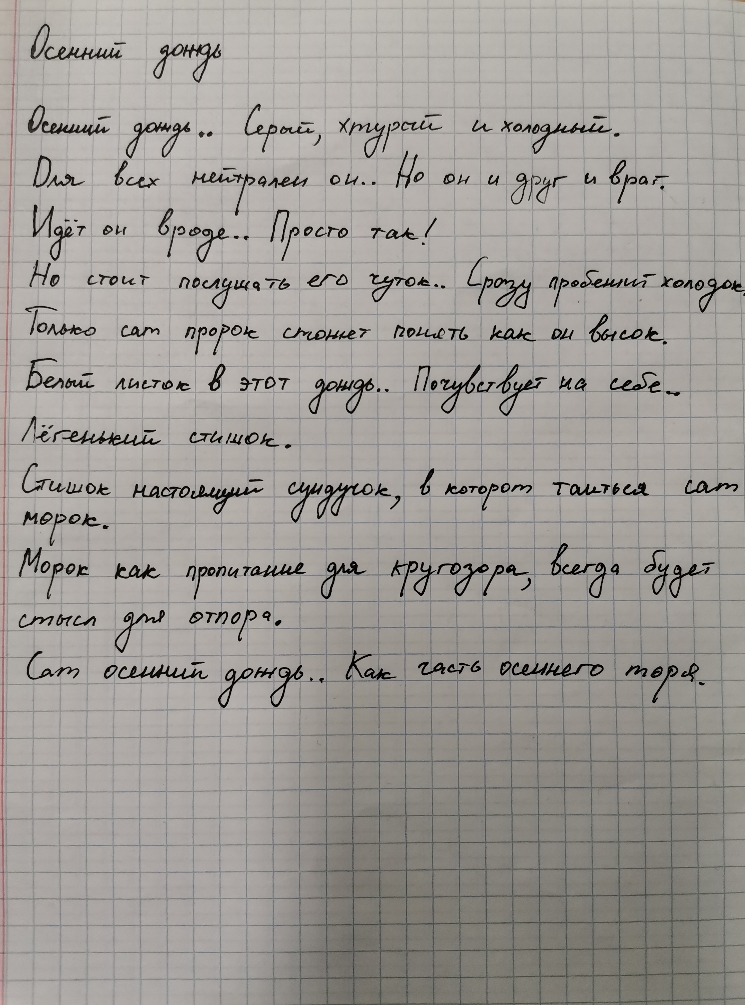 Осенний дождь
Осенний дождь.. Серый, хмурый и холодный.
Для всех нейтрален он.. Но он и друг и враг.
Идёт он вроде.. Просто так!
Но стоит послушать его чуток.. Сразу пробежит холодок.
Только сам пророк сможет понять как он высок.
Белый листок в этот дождь.. Почувствует на себе..
Лёгенький стишок.
Стишок настоящий сундучок, в котором таиться сам
морок.
Морок как пропитание для кругозора, всегда будет
смысл для отпора.
Сам осенний дождь.. Как часть осеннего моря.